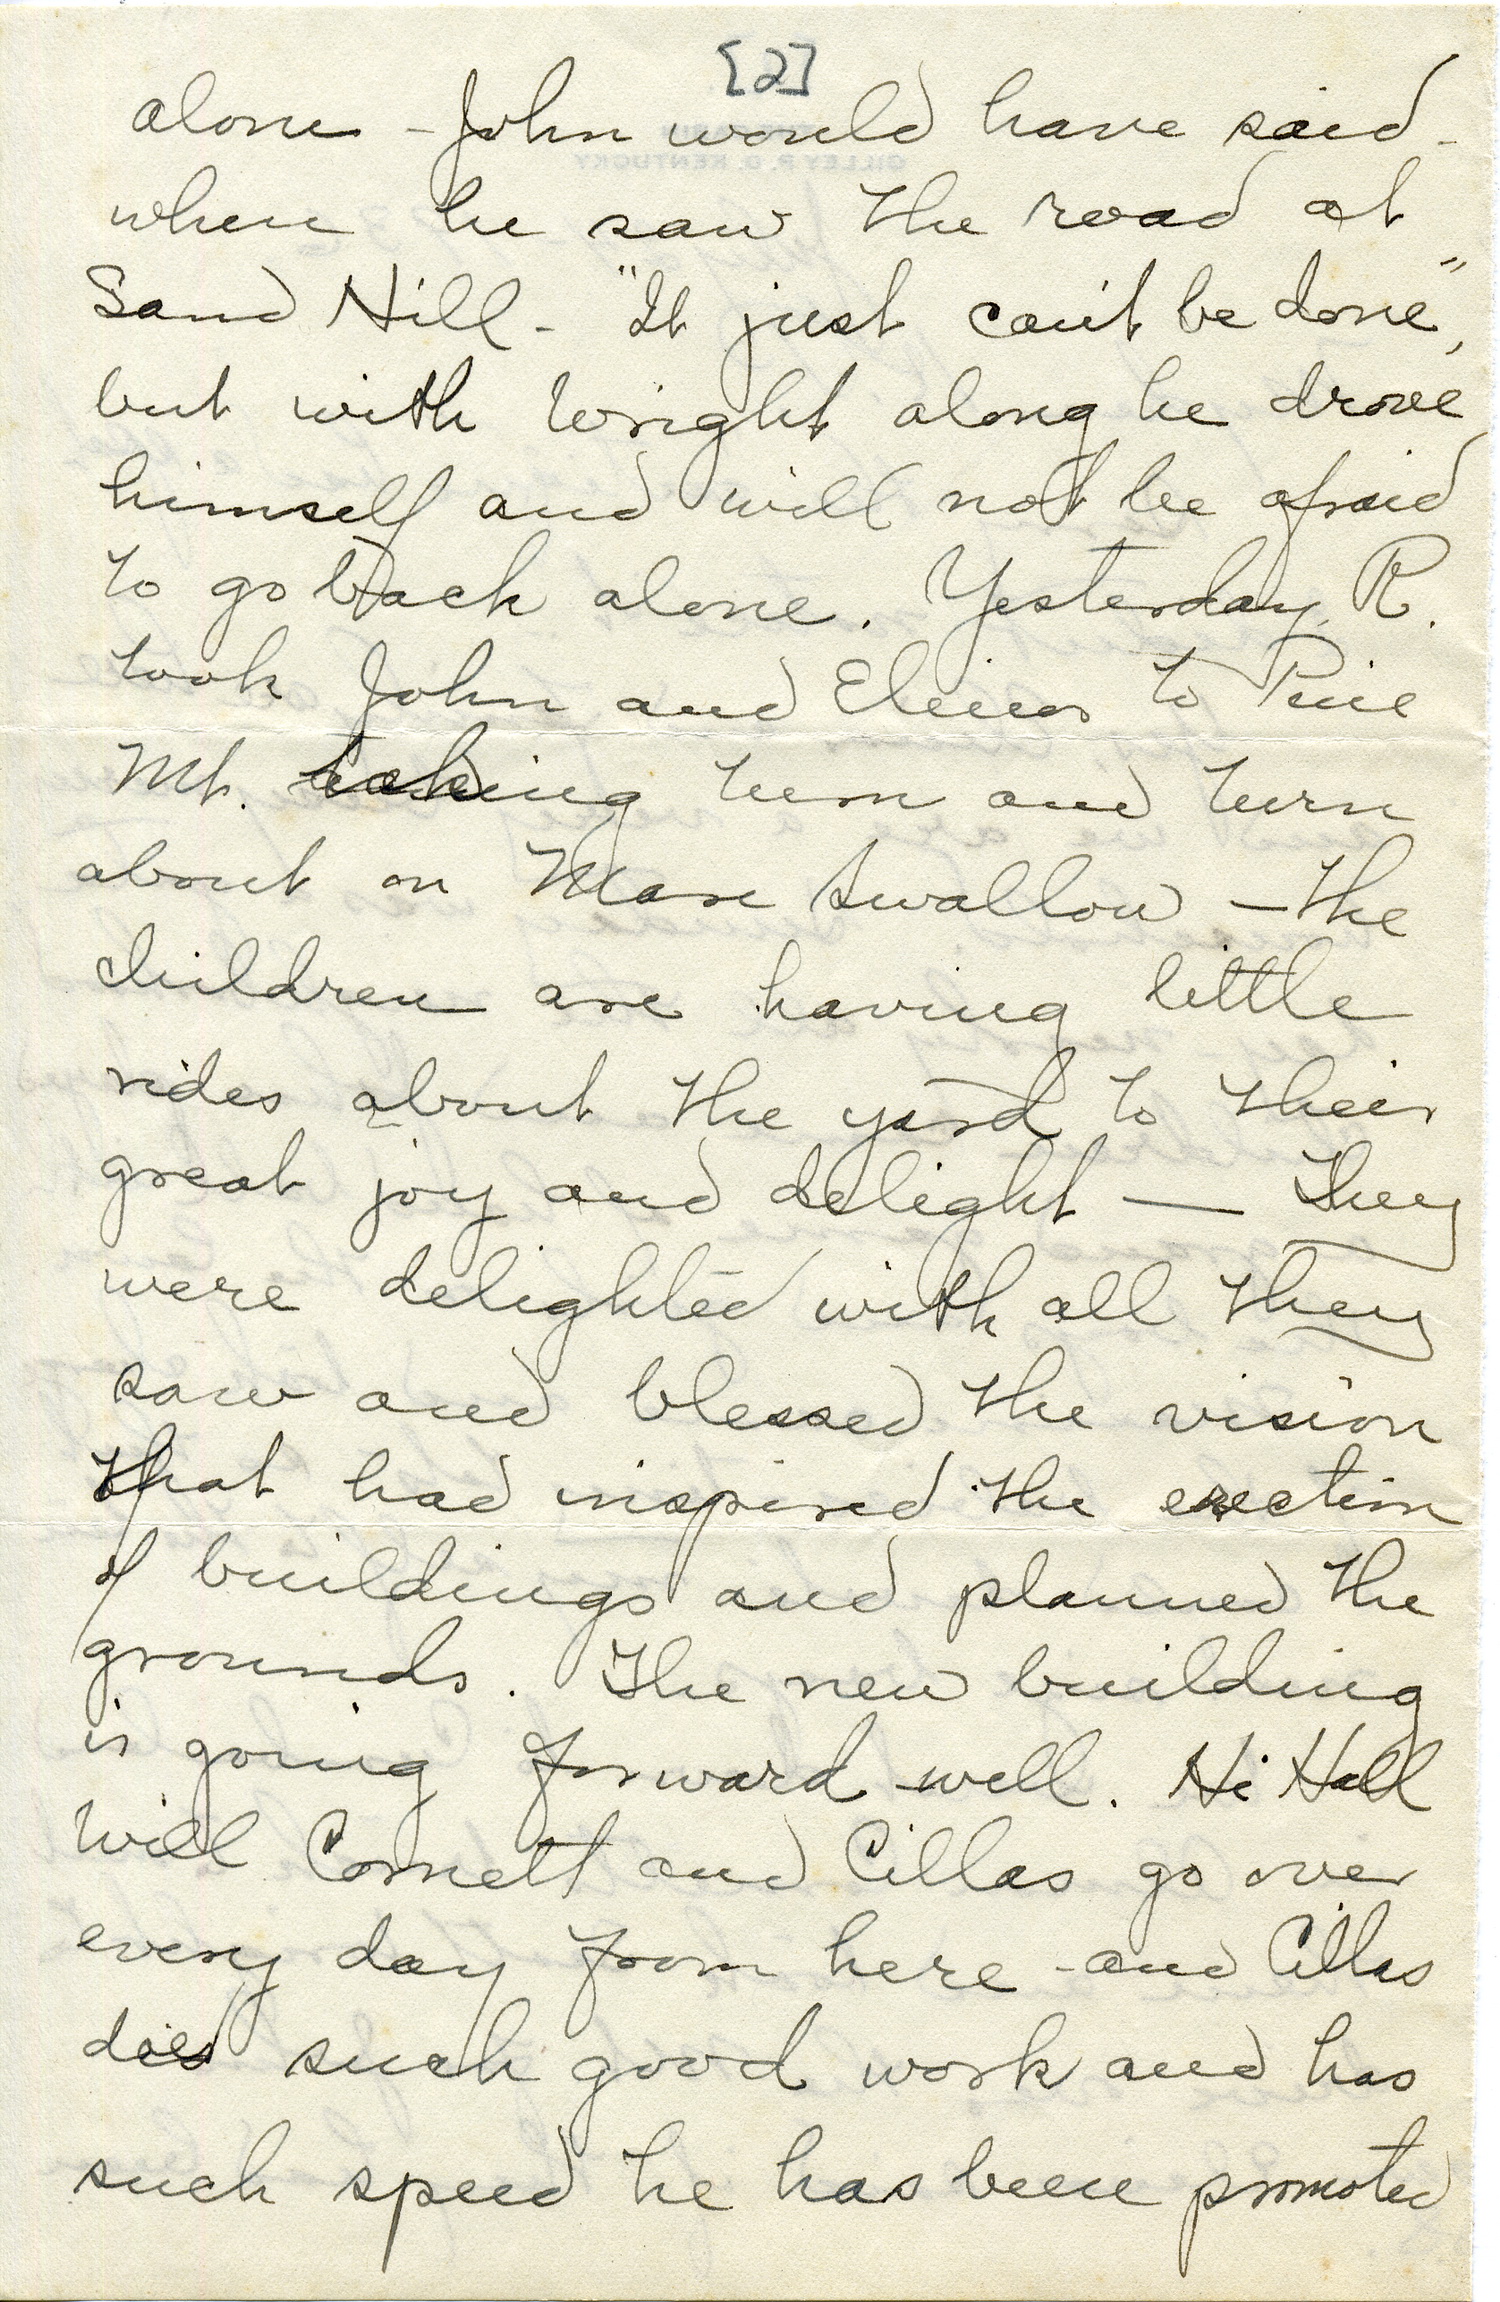 [2]
alone - John would have said -
when he saw the road at
Sand Hill - "It just can't be done",
but with Wright along he drove
himself and will not be afraid
to go back alone. Yesterday, R.
took John and Elinor to Pine
Mt. taking turn and turn
about on Mare Swallow - the
children are having little
rides about the yard to their
great joy and delight — They
were delighted with all they
saw and blessed the vision
that had inspired the erection
of buildings and planned the
grounds. The new building
is going forward well. Hi Hall
Will Cornett and Cillas go over
every day from here - and Cillas
does such good work and has
such speed he has been promoted
GILLEY P. O. KENTUCKY